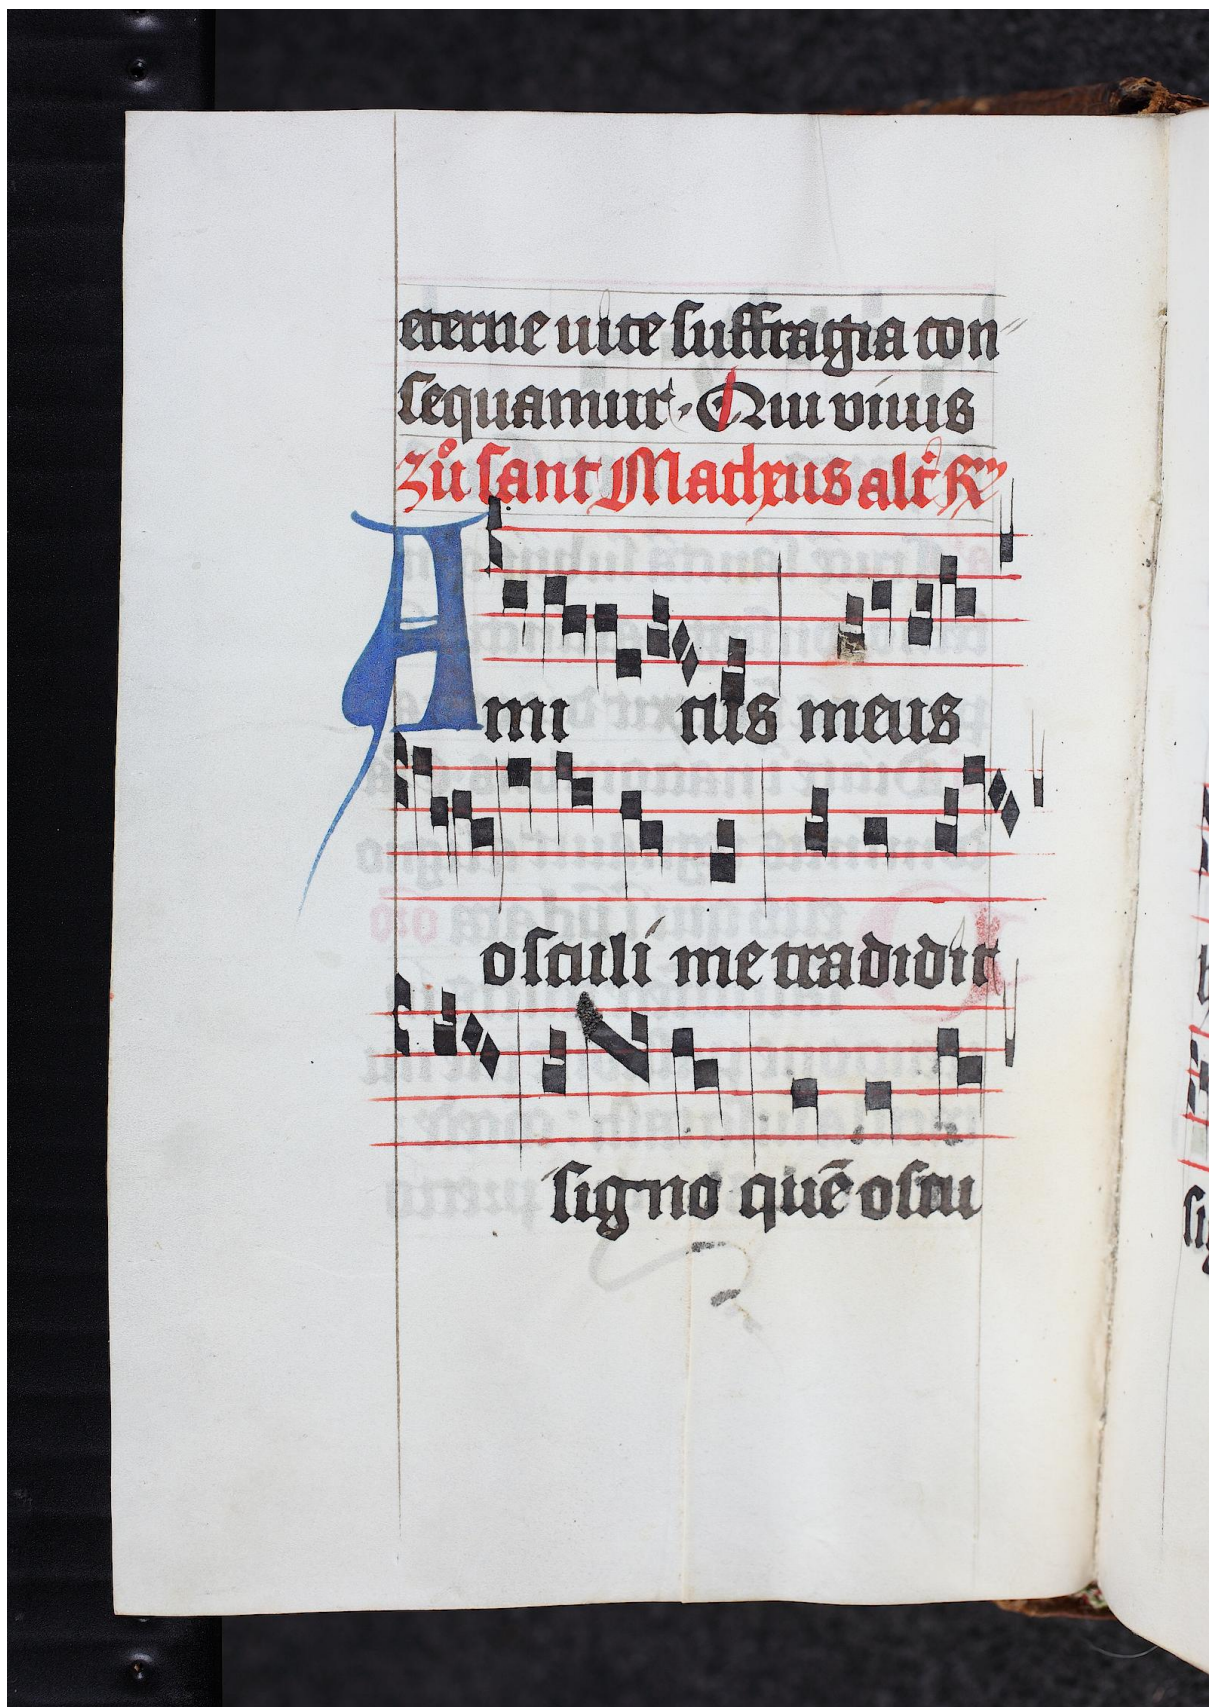 eterne uite suffragia con
sequamur. Qui viuus
zů sant Matheus alt℟
Amicus meus
osculi me tradidit
signo quē oscu